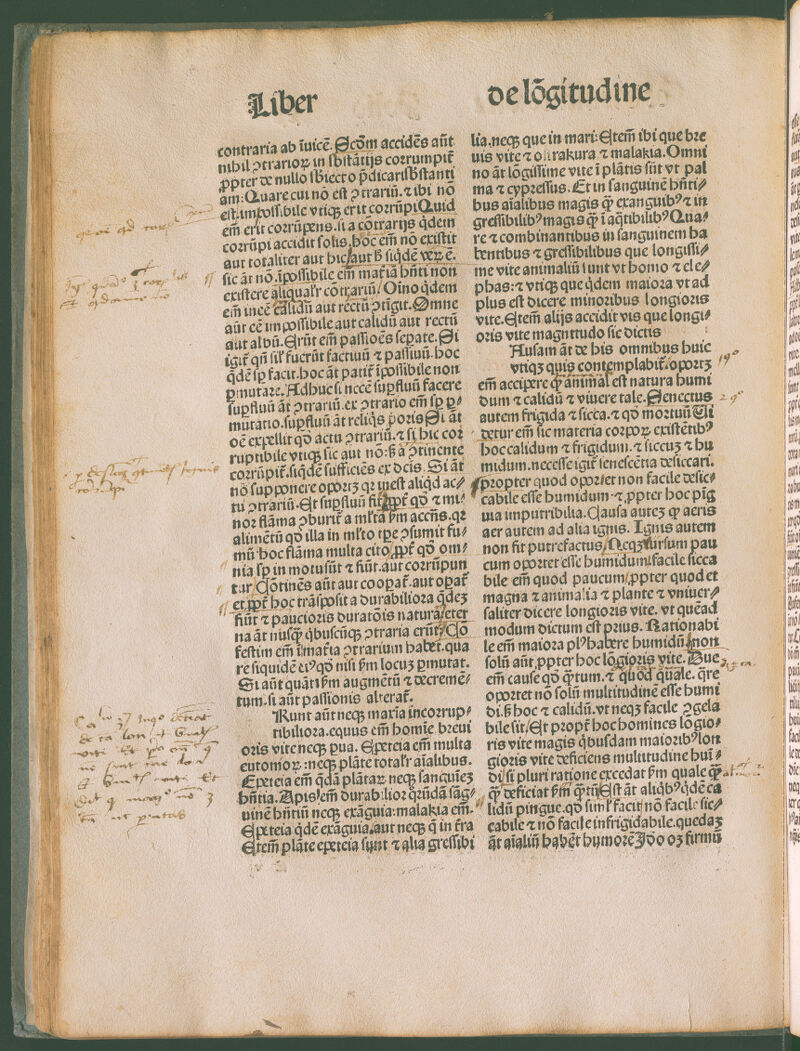 Liber
de lõgitudine
contraria ab īuicē. Scd̄m accidēs aūt
nihil ꝯtrarioꝝ in sb̄stātijs corrumpit̄
ꝓpter de nullo sb̄iecto p̄dicari sb̄stanti
am: Quare cui nō est ꝯtrariū. ⁊ ibi nō
est. impossibile vtiqꝫ erit corrūpi Quid
em̄ erit corrūpens. si a cōtrarijs q̄dem
corrūpi accidit solis. hoc em̄ nō existit
aut totaliter aut hic/aut ß siqdē veꝝ ē.
sic āt nō. īpossibile em̄ mat̄iā hn̄ti non
existere aliqual̄r cōtrariū/Oīno q̄dem
em̄ inēē calidū aut rectū ꝯtīgit. Omne
aūt ēē impossibile aut calidū aut rectū
aut albū. Erūt em̄ passiōes sepate. Si
igit̄ qn̄ sil̄ fuerūt factiuū ⁊ passiuū. hoc
q̄dē sp̄ facit. hoc āt patit̄ īpossibile non
ꝑmutare. Adhuc si necē supfluū facere
supfluū āt ꝯtrariū. ex ꝯtrario em̄ sp̄ ꝑ/
mutatio. supfluū āt reliqs poris Si āt
oē expellit qd̄ actu ꝯtrariū. ⁊ si hic cor
ruptibile vtiqꝫ sic aut nō: ß a ꝯtinente
corrūpit̄. siqdē sufficiēs ex dcis. Si āt
nō supponere oportꝫ qꝛ inest aliqd ac/
tu ꝯtrariū. Et supfluū fit. ꝓpt̄ qd̄ ⁊ mi/
nor flāma ꝯburit̄ a ml̄ta ẜm accn̄s. qꝛ
alimētū qd̄ illa in ml̄to tpe ꝯsumit fu/
mū. hoc flāma multa cito/ꝓpt̄ qd̄ om/
nia sp̄ in motu sūt ⁊ fiūt. aut corrūpun
tur/Cōtinēs aūt aut coopat̄. aut opat̄
et ꝓpt̄ hoc trāsposita durabiliora q̄deꝫ
fiūt ⁊ paucioris duratōis natura/eter
na āt nusq̄ qbuscūqꝫ ꝯtraria erūt/Cō
festim em̄ ī mat̄ia ꝯtrarium habet. qua
re siquidē eiꝰ qd̄ nisi ẜm locuꝫ ꝑmutat.
Si aūt quāti ẜm augmētū ⁊ decremē/
tum. si aūt passionis alterat̄.
Sunt aūt neqꝫ maxīa incorrup/
tibiliora. equus em̄ homīe breui
oris vite neqꝫ pua. Epeteia em̄ multa
eutomoꝝ. :neqꝫ plāte total̄r aīalibus.
Epeteia em̄ q̄dā plātaꝝ neqꝫ sanguīeꝫ
hn̄tia. Apis em̄ durabilior qrūdā sāg/
uinē hn̄tiū neqꝫ exāguia: malakia em̄.
Epeteia q̄dē exāguia. aut neqꝫ q̄ in t̄ra
Etem̄ plāte epeteia sunt ⁊ alia gressibi
lia. neqꝫ que in mari: Etem̄ ibi que bre
uis vite ⁊ ostrakura ⁊ malakia. Omni
no āt lōgissime vite ī plātis sūt vt pal
ma ⁊ cypressus. Et in sanguinē hn̄ti/
bus aīalibus magis q̄ exanguibꝰ ⁊ in
gressibilibꝰ magis q̄ ī aq̄tibilibꝰ Qua/
re ⁊ combinantibus in sanguinem ha
bentibus ⁊ gressibilibus que longissi/
me vite animaliū sunt vt homo ⁊ ele/
phas: ⁊ vtiqꝫ que q̄dem maiora vt ad
plus est dicere minoribus longioris
vite. Etem̄ alijs accidit vis que longi/
oris vite magnitudo sic dictis
Causam āt de his omnibus huic
vtiqꝫ quis contemplabit̄. oportꝫ
em̄ accipere q̄ animal est natura humi
dum ⁊ calidū ⁊ viuere tale. Senectus
autem frigida ⁊ sicca. ⁊ qd̄ mortuū Vi
detur em̄ sic materia corpoꝝ existētibꝰ
hoc calidum ⁊ frigidum. ⁊ siccuꝫ ⁊ hu
midum. necesse igit̄ senescētia desiccari.
propter quod oportet non facile desic/
cabile esse humidum ⁊ ꝓpter hoc pīg
uia imputribilia. Causa auteꝫ q̄ aeris
aer autem ad alia ignis. Ignis autem
non fit putrefactus/Neqꝫ rursum pau
cum oportet esse humidum/facile sicca
bile em̄ quod paucum/ꝓpter quod et
magna ⁊ animalia ⁊ plante ⁊ vniuer/
saliter dicere longioris vite. vt quēad
modum dictum est prius. Rationabi
le em̄ maiora plꝰ habere humidū/non
solū aūt ꝓpter hoc lōgioris vite. Due
em̄ cause qd̄ q̄tum. ⁊ quod quale. qre
oportet nō solū multitudinē esse humi
di. ß hoc ⁊ calidū. vt neqꝫ facile ꝯgela
bile sit/Et propt̄ hoc homines lōgio/
ris vite magis q̄busdam maioribꝰ lon
gioris vite deficiens multitudine hui/
di/si pluri ratione excedat ẜm quale q̄
q̄ deficiat ẜm q̄tū/Est āt aliqbꝰ q̄dē ca
lidū pingue. qd̄ siml̄ facit nō facile sic/
cabile ⁊ nō facile infrigidabile. quedaꝫ
āt aīaliū habēt humorē Ido oꝫ firmū